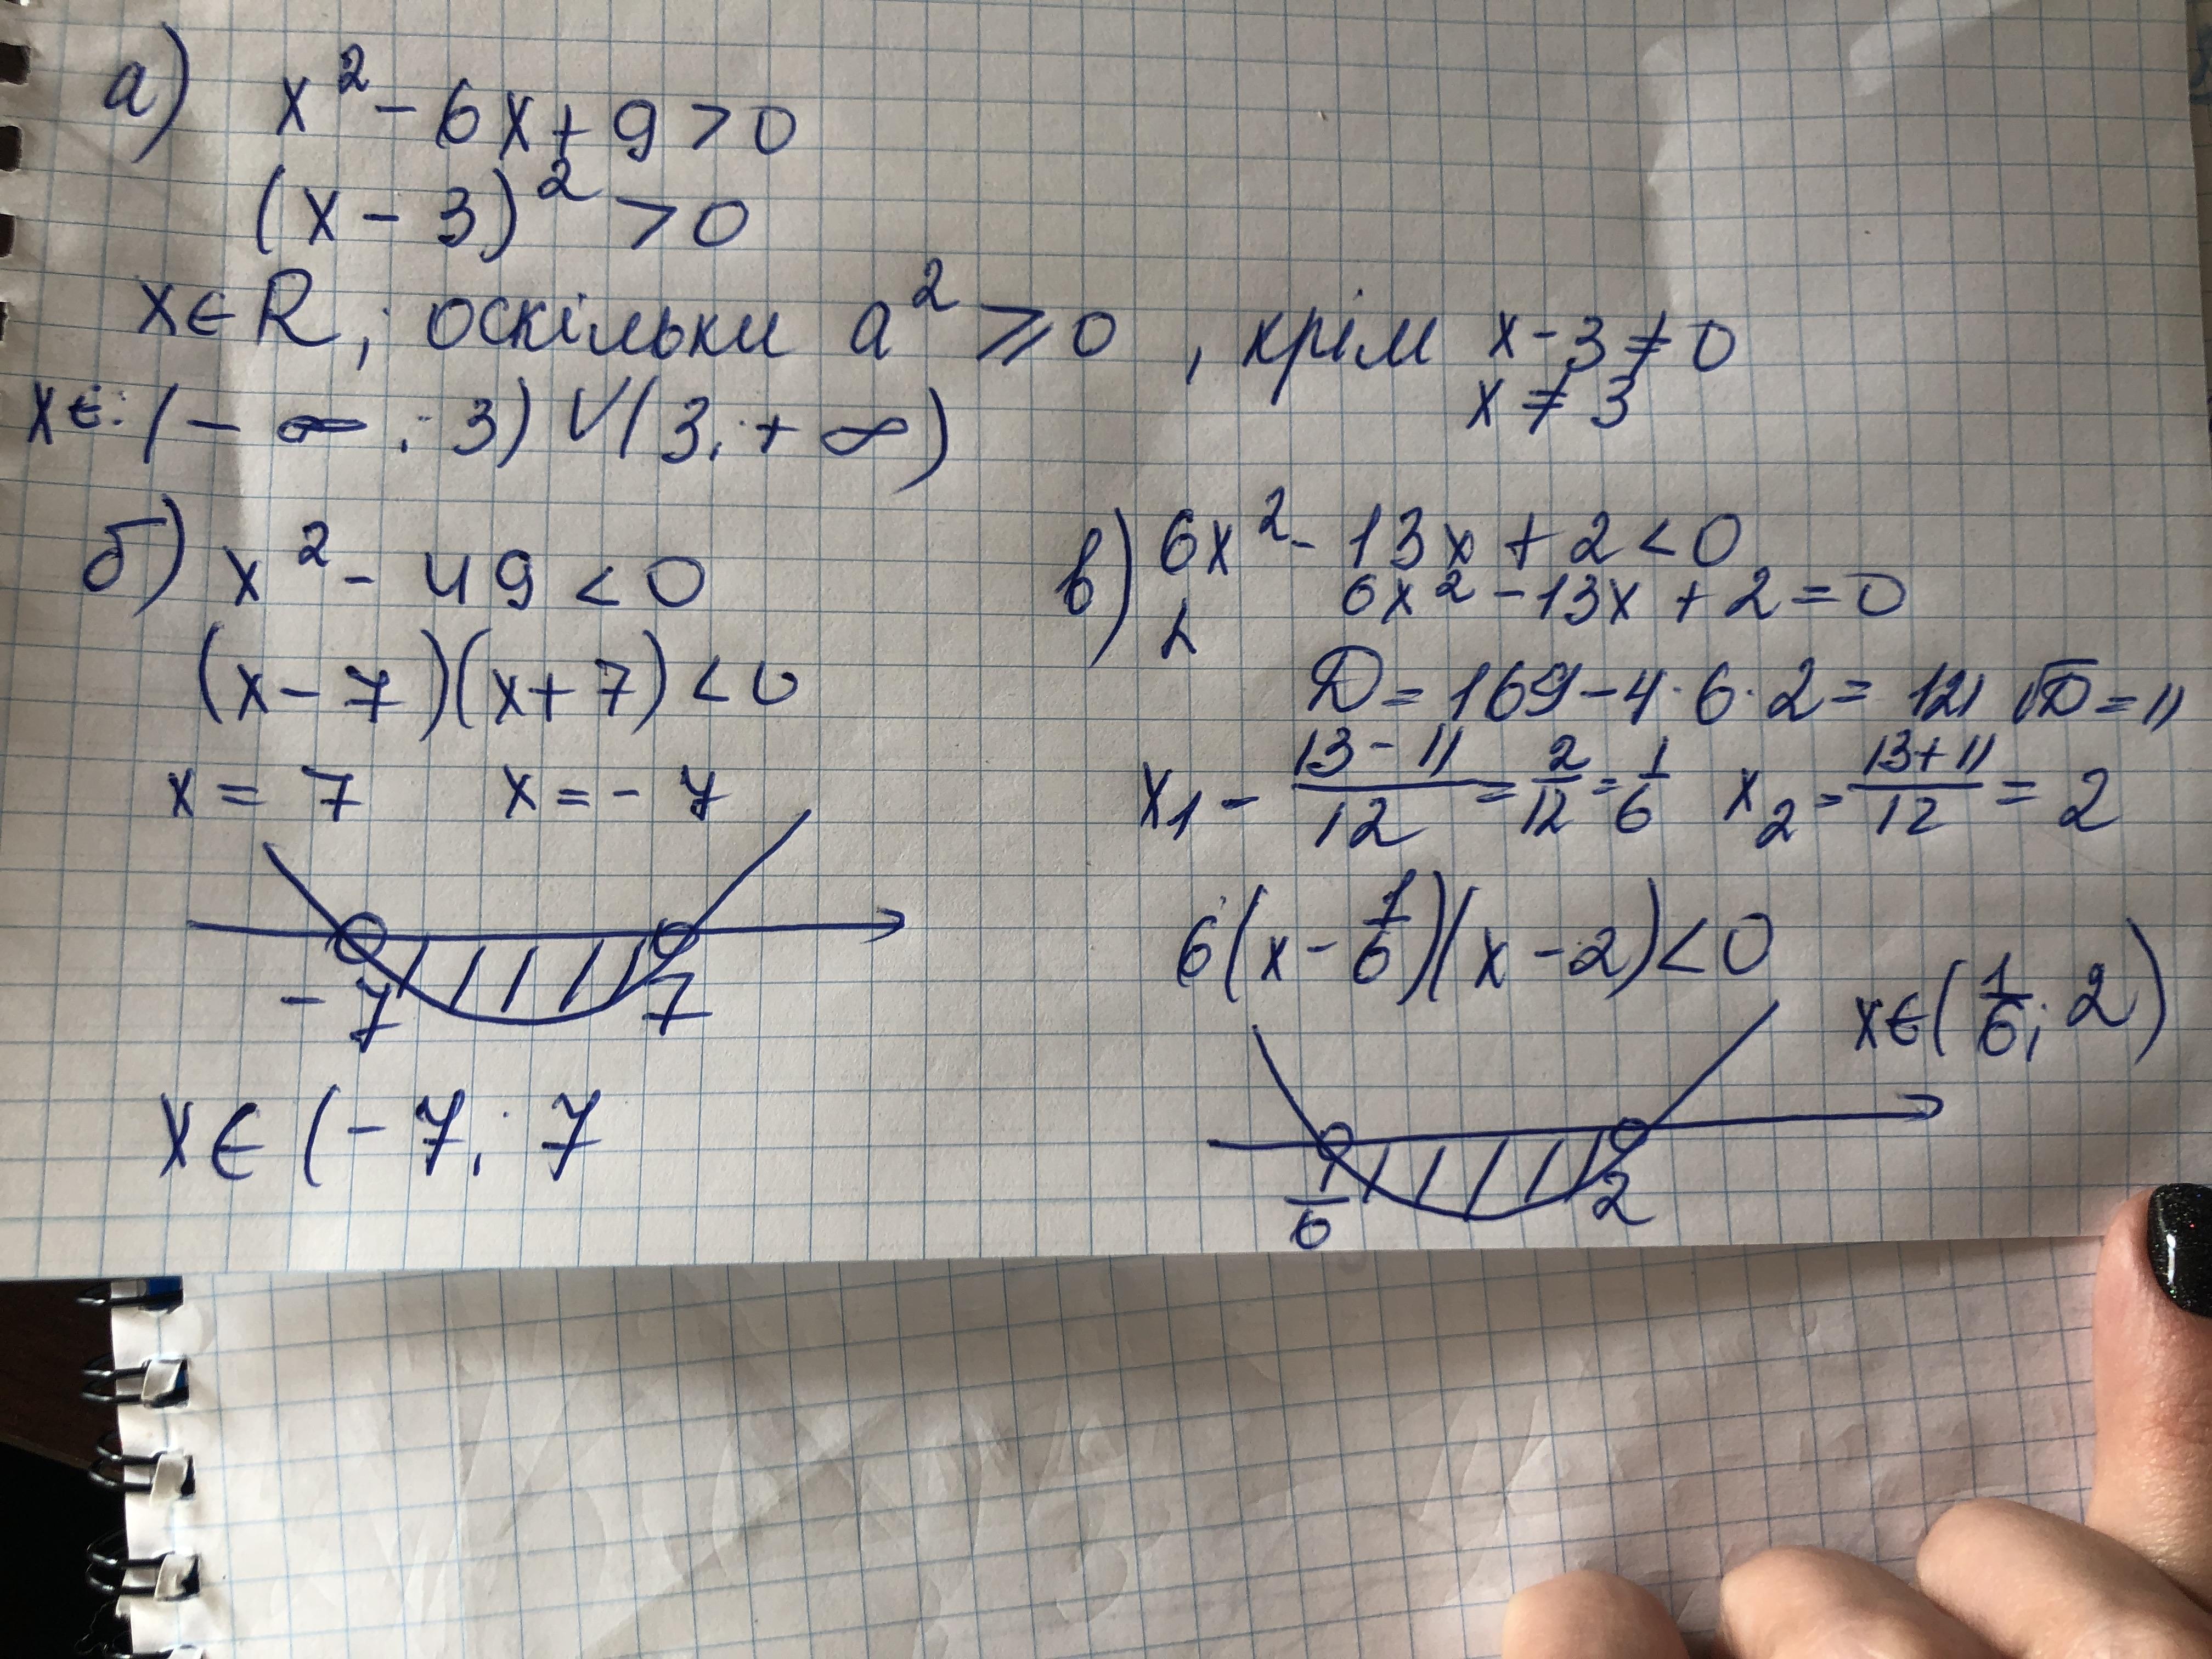 а) x² - 6x + 9 > 0
(x - 3)² > 0
x ∈ R, оскільки a² ⩾ 0, крім x - 3 ≠ 0
x ≠ 3
x ∈: (- ∞ ; 3) ∨ (3; + ∞)
б) x² - 49 < 0
(x - 7)(x + 7) < 0
x = 7 x = - 7
- 7 7
x ∈ (- 7; 7
в) 6x² - 13x + 2 < 0
6x² - 13x + 2 = 0
D = 169 - 4 · 6 · 2 = 121 √D = 11
x₁ - 13 - 11 / 12 = 2/12 = 1/6 x₂ = 13 + 11 / 12 = 2
6(x - 1/6)(x - 2) < 0
x ∈ (1/6; 2)
1/6 2